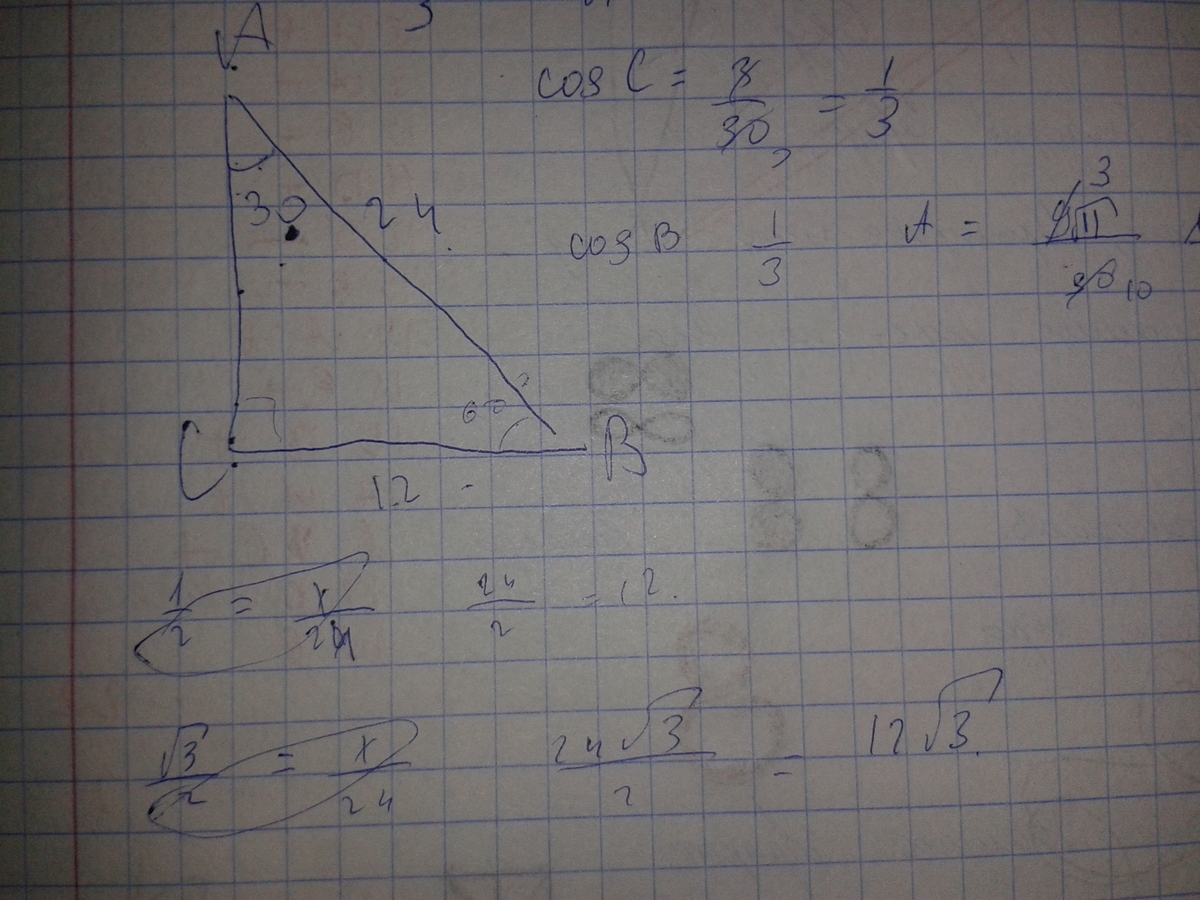 A
cos C = 8/30 = 1/3
30 24
cos B 1/3 A = 3
10
60
C B
12
1/2 = x/24 24/2 = 12.
√3/2 = x/24 24√3/2 = 12√3.